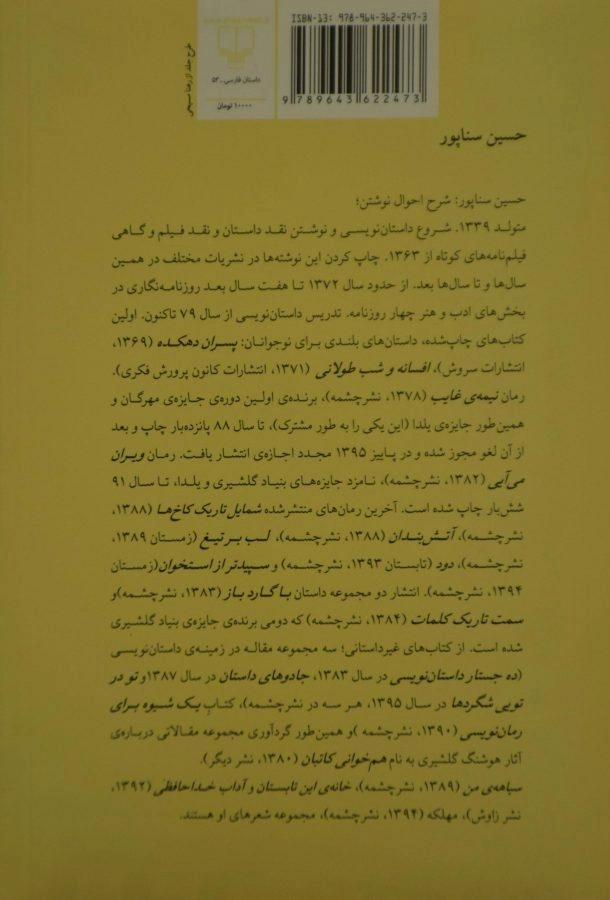 ISBN-13: 978-964-362-247-3
9 789643 622473
داستان فارسی ــ ۵۳
۱۰۰۰۰ تومان
حسین سناپور
حسین سناپور: شرح احوال نوشتن؛
متولد ۱۳۳۹. شروع داستان‌نویسی و نوشتن نقد داستان و نقد فیلم و گاهی
فیلم‌نامه‌های کوتاه از ۱۳۶۳. چاپ کردن این نوشته‌ها در نشریات مختلف در همین
سال‌ها و تا سال‌ها بعد. از حدود سال ۱۳۷۲ تا هفت سال بعد روزنامه‌نگاری در
بخش‌های ادب و هنر چهار روزنامه. تدریس داستان‌نویسی از سال ۷۹ تاکنون. اولین
کتاب‌های چاپ‌شده، داستان‌های بلندی برای نوجوانان: پسران دهکده (۱۳۶۹،
انتشارات سروش)، افسانه و شب طولانی (۱۳۷۱، انتشارات کانون پرورش فکری).
رمان نیمه‌ی غایب (۱۳۷۸، نشرچشمه)، برنده‌ی اولین دوره‌ی جایزه‌ی مهرگان و
همین‌طور جایزه‌ی یلدا (این یکی را به طور مشترک)، تا سال ۸۸ پانزده‌بار چاپ و بعد
از آن لغو مجوز شده و در پاییز ۱۳۹۵ مجدد اجازه‌ی انتشار یافت. رمان ویران
می‌آیی (۱۳۸۲، نشرچشمه)، نامزد جایزه‌های بنیاد گلشیری و یلدا، تا سال ۹۱
شش‌بار چاپ شده است. آخرین رمان‌های منتشرشده شمایل تاریک کاخ‌ها (۱۳۸۸،
نشرچشمه)، آتش‌بندان (۱۳۸۸، نشرچشمه)، لب بر تیغ (زمستان ۱۳۸۹،
نشرچشمه)، دود (تابستان ۱۳۹۳، نشرچشمه) و سپیدتر از استخوان (زمستان
۱۳۹۴، نشرچشمه). انتشار دو مجموعه داستان با گارد باز (۱۳۸۳، نشرچشمه)و
سمت تاریک کلمات (۱۳۸۴، نشرچشمه) که دومی برنده‌ی جایزه‌ی بنیاد گلشیری
شده است. از کتاب‌های غیرداستانی؛ سه مجموعه مقاله در زمینه‌ی داستان‌نویسی
(ده جستار داستان‌نویسی در سال ۱۳۸۳، جادوهای داستان در سال ۱۳۸۷و تو در
تویی شگردها در سال ۱۳۹۵، هر سه در نشرچشمه)، کتاب یک شیوه برای
رمان‌نویسی (۱۳۹۰، نشرچشمه )و همین‌طور گردآوری مجموعه مقالاتی درباره‌ی
آثار هوشنگ گلشیری به نام هم‌خوانی کاتبان (۱۳۸۰، نشر دیگر).
سیاهه‌ی من (۱۳۸۹، نشرچشمه)، خانه‌ی این تابستان و آداب خداحافظی (۱۳۹۲،
نشر زاوش)، مهلکه (۱۳۹۴، نشرچشمه)، مجموعه شعرهای او هستند.